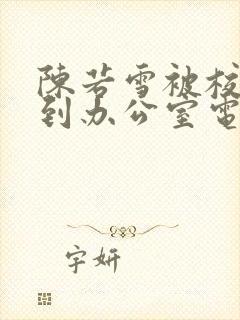 陳若雪被校
到办公室電
字妍